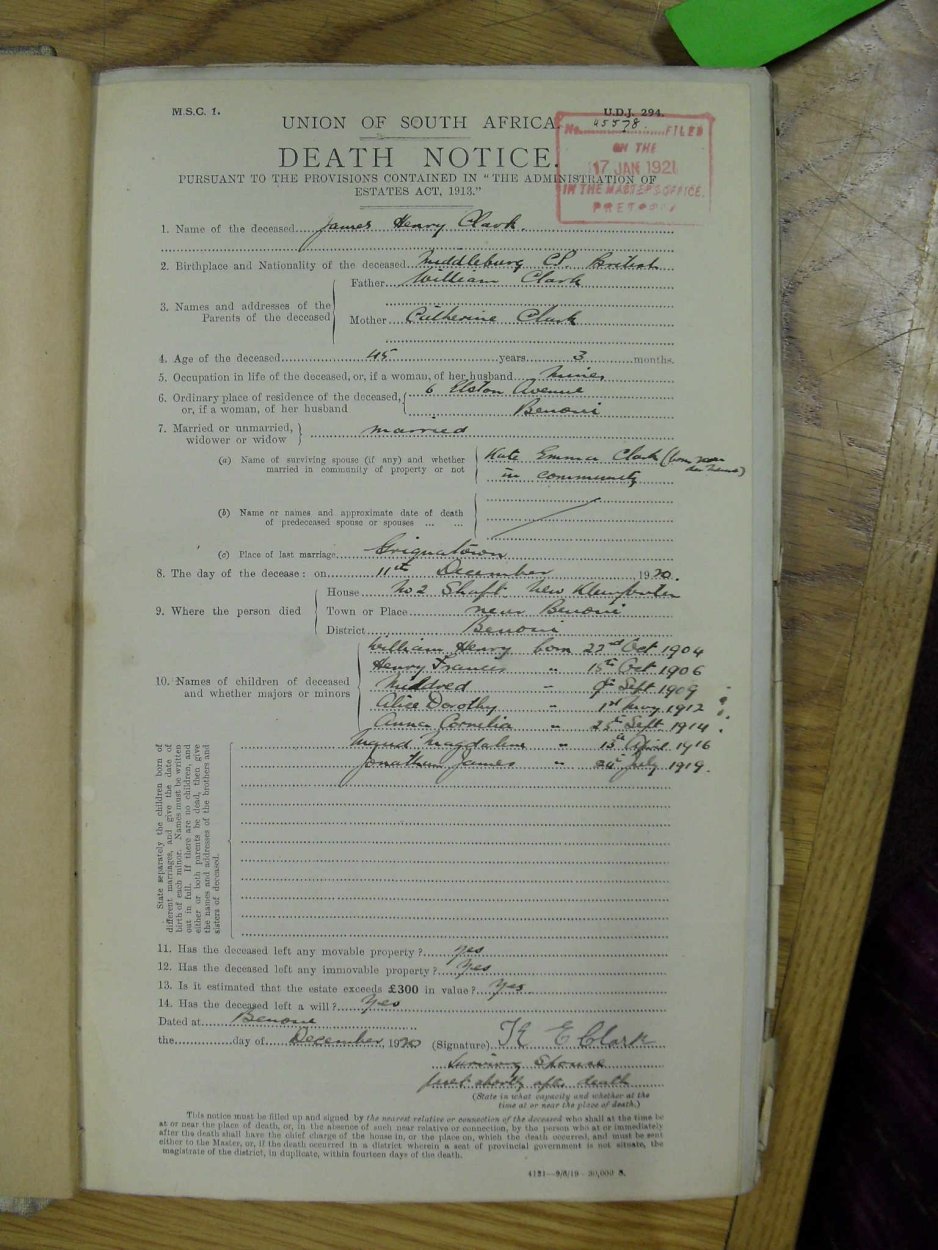 M.S.C. 1.
U.D.J. 294.
UNION OF SOUTH AFRICA.
No. 45578 FILED
ON THE
17 JAN 1921
IN THE MASTER'S OFFICE.
PRETORIA
DEATH NOTICE.
PURSUANT TO THE PROVISIONS CONTAINED IN "THE ADMINISTRATION OF
ESTATES ACT, 1913."
1. Name of the deceased James Henry Clark.
2. Birthplace and Nationality of the deceased Middleburg CP. British
3. Names and addresses of the
Parents of the deceased
Father William Clark
Mother Catherine Clark
4. Age of the deceased 45 years 3 months.
5. Occupation in life of the deceased, or, if a woman, of her husband Miner
6. Ordinary place of residence of the deceased,
or, if a woman, of her husband
6 Elston Avenue
Benoni
7. Married or unmarried,
widower or widow
married
(a) Name of surviving spouse (if any) and whether
married in community of property or not
Kate Emma Clark (born
in community
(b) Name or names and approximate date of death
of predeceased spouse or spouses ... ...
(c) Place of last marriage Griquatown
8. The day of the decease: on 11th December 1920.
9. Where the person died
House No 2 Shaft New Kleinfontein
Town or Place near Benoni
District Benoni
10. Names of children of deceased
and whether majors or minors
William Henry born 22nd Oct 1904
Henry Francis " 15th Oct 1906
Mildred " 9th Sept 1909
Alice Dorothy " 1st 1912
Anna Cornelia " 25th Sept 1914
Maud Magdalena " 15th April 1916
Jonathan James " 24th July 1919.
State separately the children born of
different marriages, and give the date of
birth of each minor. Names must be written
out in full. If there are no children, and
either or both parents be dead, then give
the names and addresses of the brothers and
sisters of deceased.
11. Has the deceased left any movable property? yes
12. Has the deceased left any immovable property? Yes
13. Is it estimated that the estate exceeds £300 in value? Yes
14. Has the deceased left a will? Yes
Dated at Benoni
the day of December, 1920 (Signature) K E Clark
Surviving Spouse
shortly after death
(State in what capacity and whether at the
time at or near the place of death.)
This notice must be filled up and signed by the nearest relative or connection of the deceased who shall at the time be
at or near the place of death, or, in the absence of such near relative or connection, by the person who at or immediately
after the death shall have the chief charge of the house in, or the place on, which the death occurred, and must be sent
either to the Master, or, if the death occurred in a district wherein a seat of provincial government is not situate, the
magistrate of the district, in duplicate, within fourteen days of the death.
4121—9/6/19—30,000 S.